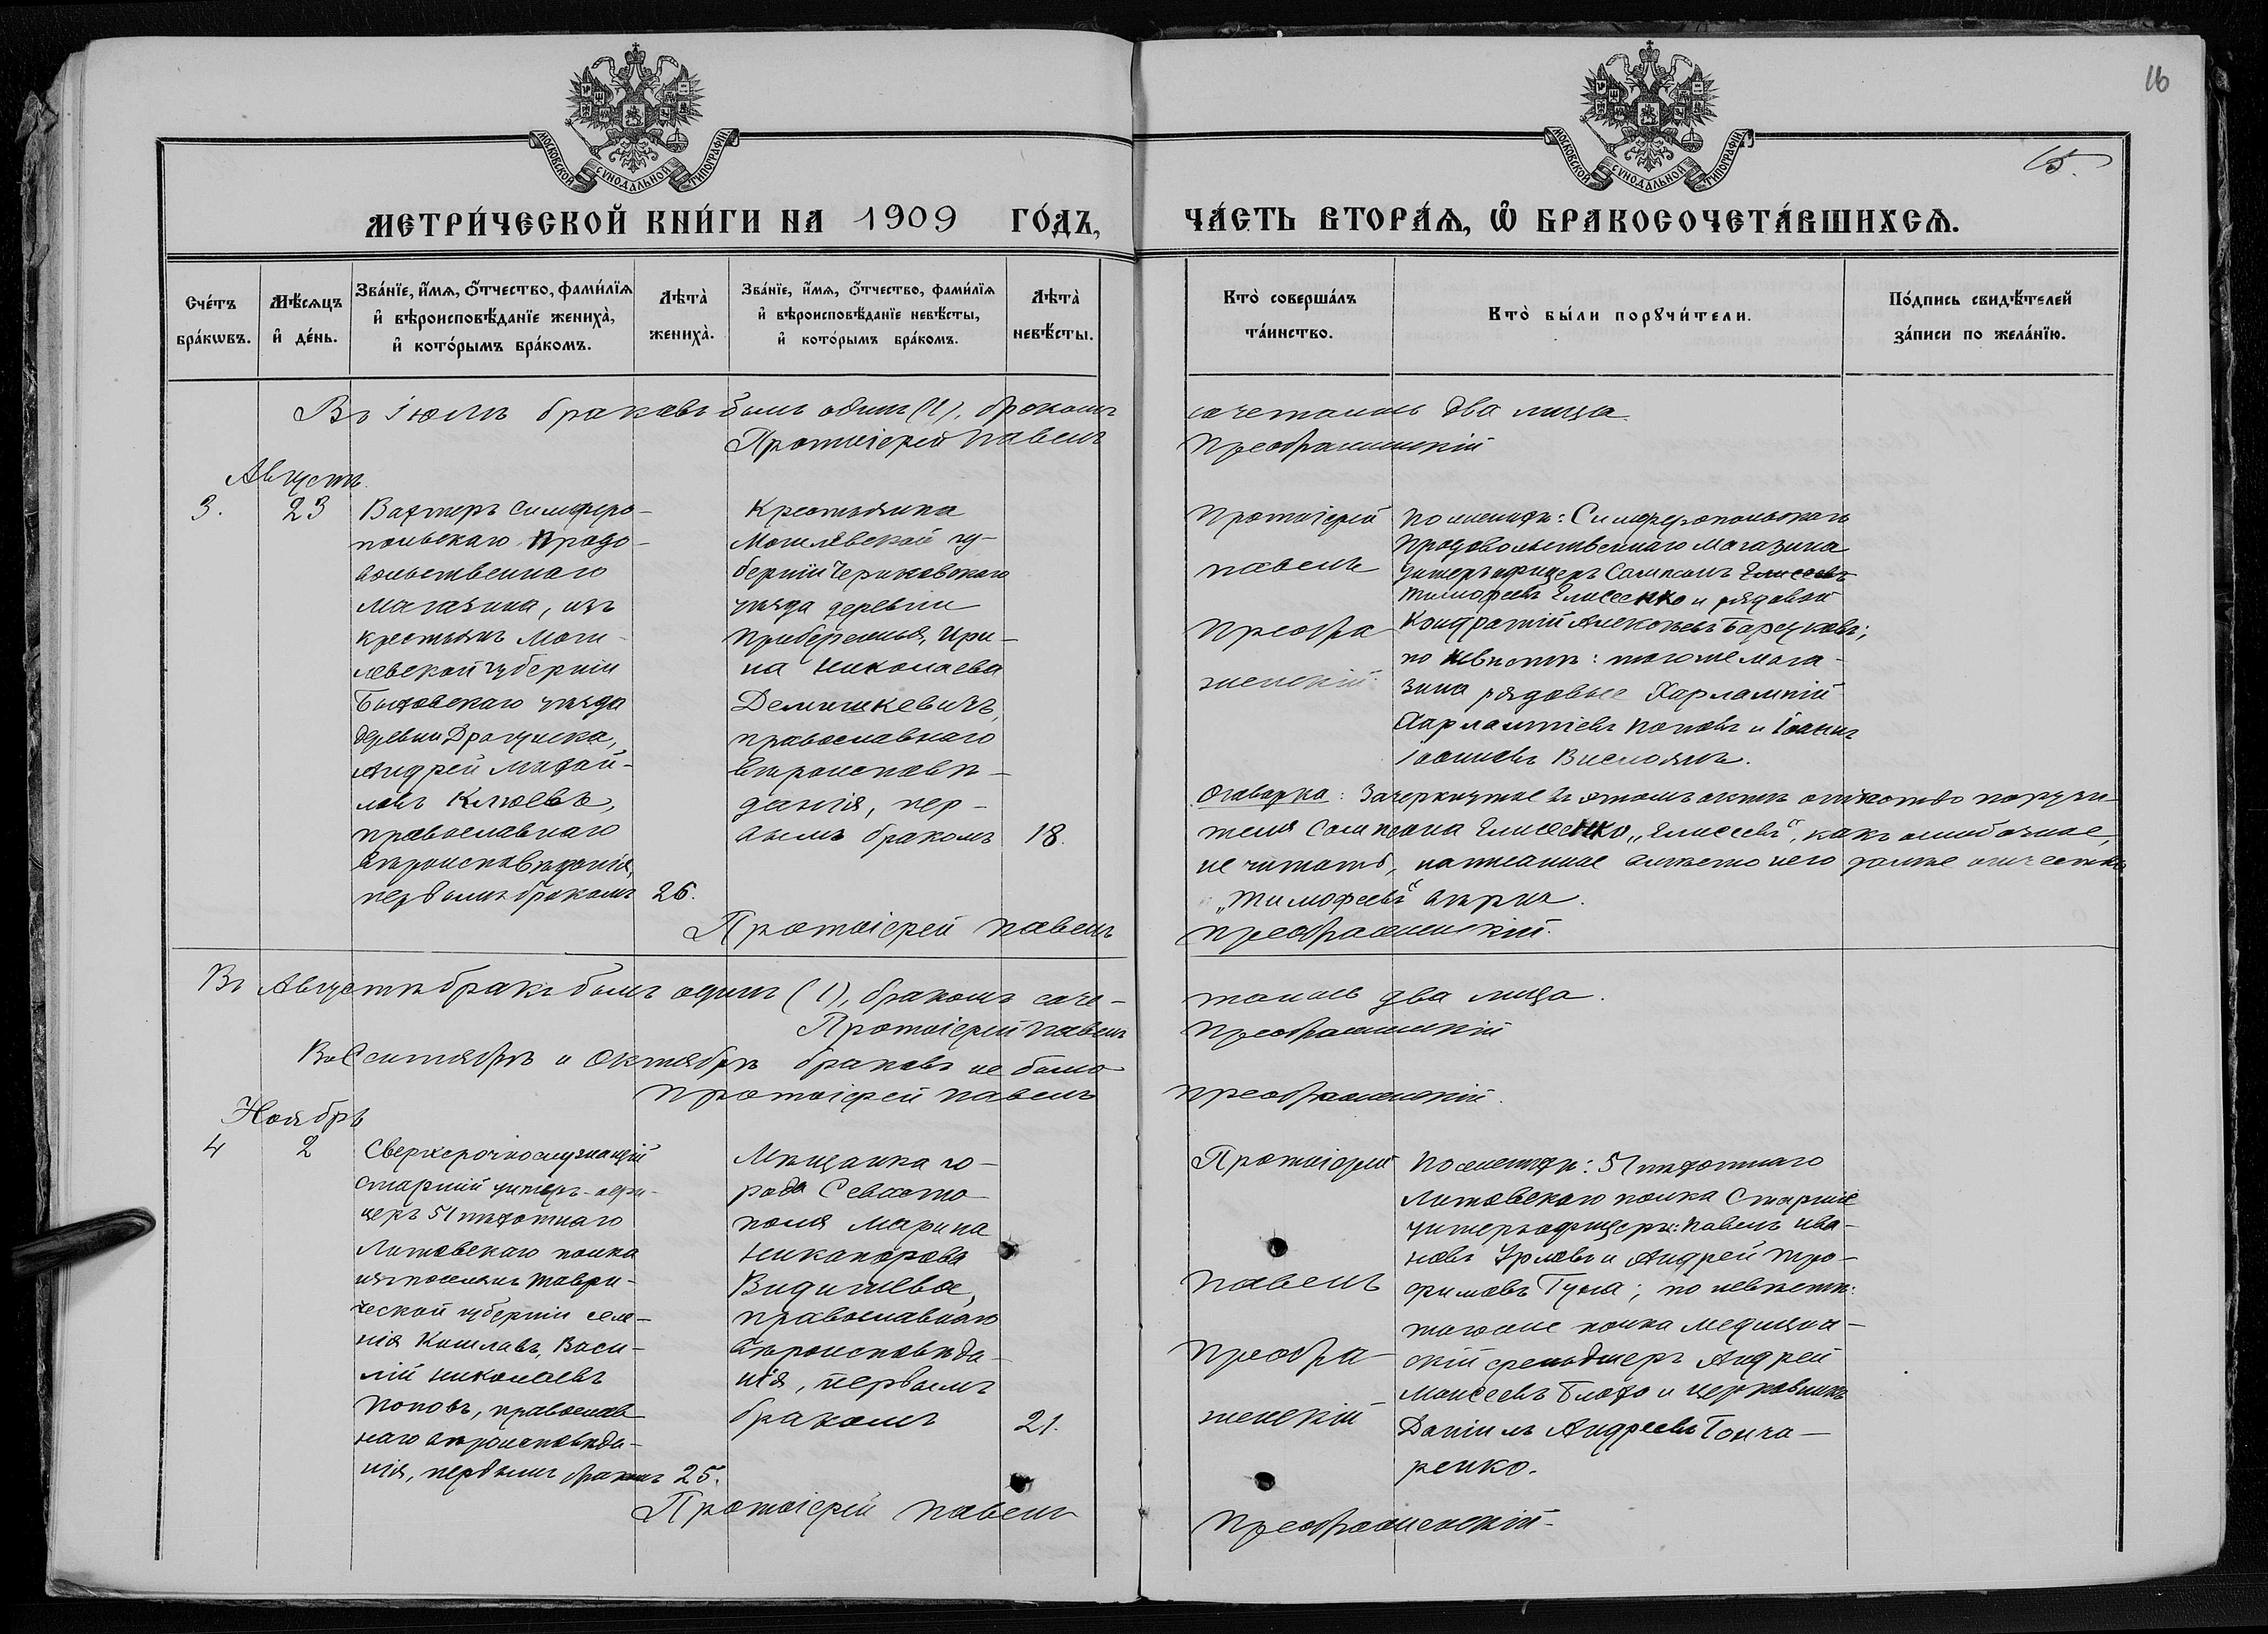 МОСКОВСКОЙ СУНОДАЛЬНОЙ ТИПОГРАФІИ
МОСКОВСКОЙ СУНОДАЛЬНОЙ ТИПОГРАФІИ
16
15.
МЕТРИ́ЧЕСКОЙ КНИ́ГИ НА 1909 ГО́ДЪ,
ЧА́СТЬ ВТОРА́Ѧ, Ѡ҆ БРАКОСОЧЕТА́ВШИХСѦ.
Сче́тъ
бра́кѡвъ.
Мѣ́сѧцъ
и҆ де́нь.
Зва́нїе, и҆́мѧ, ѻ҆́тчество, фами́лїѧ
и҆ вѣроисповѣ́данїе жениха̀,
и҆ кото́рымъ бра́комъ.
Лѣта̀
жениха̀.
Зва́нїе, и҆́мѧ, ѻ҆́тчество, фами́лїѧ
и҆ вѣроисповѣ́данїе невѣ́сты,
и҆ кото́рымъ бра́комъ.
Лѣта̀
невѣ́сты.
Кто̀ соверша́лъ
та́инство.
Кто̀ бы́ли порꙋчи́тели.
По́дпись свидѣ́телей
за́писи по жела́нїю.
Въ іюлѣ браковъ былъ одинъ (1), бракомъ
сочетались два лица
Протоіерей Павелъ
Преображенскій
Августъ.
3.
23
Вахтеръ Симферо-
польскаго Продо-
вольственнаго
магазина, изъ
крестьянъ Моги-
левской губерніи
Быховскаго уѣзда
деревни Драгунска,
Андрей Михай-
ловъ Клюевъ,
православнаго
вѣроисповѣданія,
первымъ бракомъ
26.
Крестьянка
Могилевской гу-
берніи Чериковскаго
уѣзда деревни
Прибережья, Ири-
на Николаева
Демишкевичъ,
православнаго
вѣроисповѣ-
данія, пер-
вымъ бракомъ
18.
Протоіерей
Павелъ
Преобра
женскій
По женихѣ: Симферопольскаго
Продовольственнаго Магазина
унтеръофицеръ Сампсонъ Елисеевъ
Тимофеевъ Елисеенко и рядовой
Кондратій Алексѣевъ Барсуковъ;
по невѣстѣ: того же мага-
зина рядовые Харлампій
Харлампіевъ Поповъ и Іоаннъ
Іоанновъ
Оговорка: Зачеркнутое въ этомъ актѣ отчество поручи-
теля Сампсона Елисеенко „Елисеевъ", какъ ошибочное,
не читать, написанное вмѣсто него далѣе отчество
„Тимофеевъ" вѣрно.
Протоіерей Павелъ
Преображенскій.
Въ Августѣ бракъ былъ одинъ (1), бракомъ соче-
тались два лица.
Протоіерей Павелъ
Преображенскій
Въ Сентябрѣ и Октябрѣ браковъ не было
Протоіерей Павелъ
Преображенскій.
Ноябрь
4
2
Сверхсрочнослужащій
старшій унтеръ-офи-
церъ 51 пѣхотнаго
Литовскаго полка
изъ поселянъ Таври-
ческой губерніи селе-
нія Кишлавъ, Васи-
лій Николаевъ
Поповъ, православ-
наго вѣроисповѣда-
нія, первымъ бракомъ
25.
Мѣщанка го-
рода Севасто-
поля Марина
Никанорова
Видищева,
православнаго
вѣроисповѣда-
нія, первымъ
бракомъ
21.
Протоіерей
Павелъ
Преобра
женскій
По женихѣ: 51 пѣхотнаго
Литовскаго полка Старшіе
унтеръофицеры: Павелъ Ива-
новъ Урловъ и Андрей Тро-
фимовъ Гула; по невѣстѣ:
того же полка медицин-
скій фельдшеръ Андрей
Моисеевъ Блохо и церковникъ
Даніилъ Андреевъ Гонча-
ренко.
Протоіерей Павелъ
Преображенскій